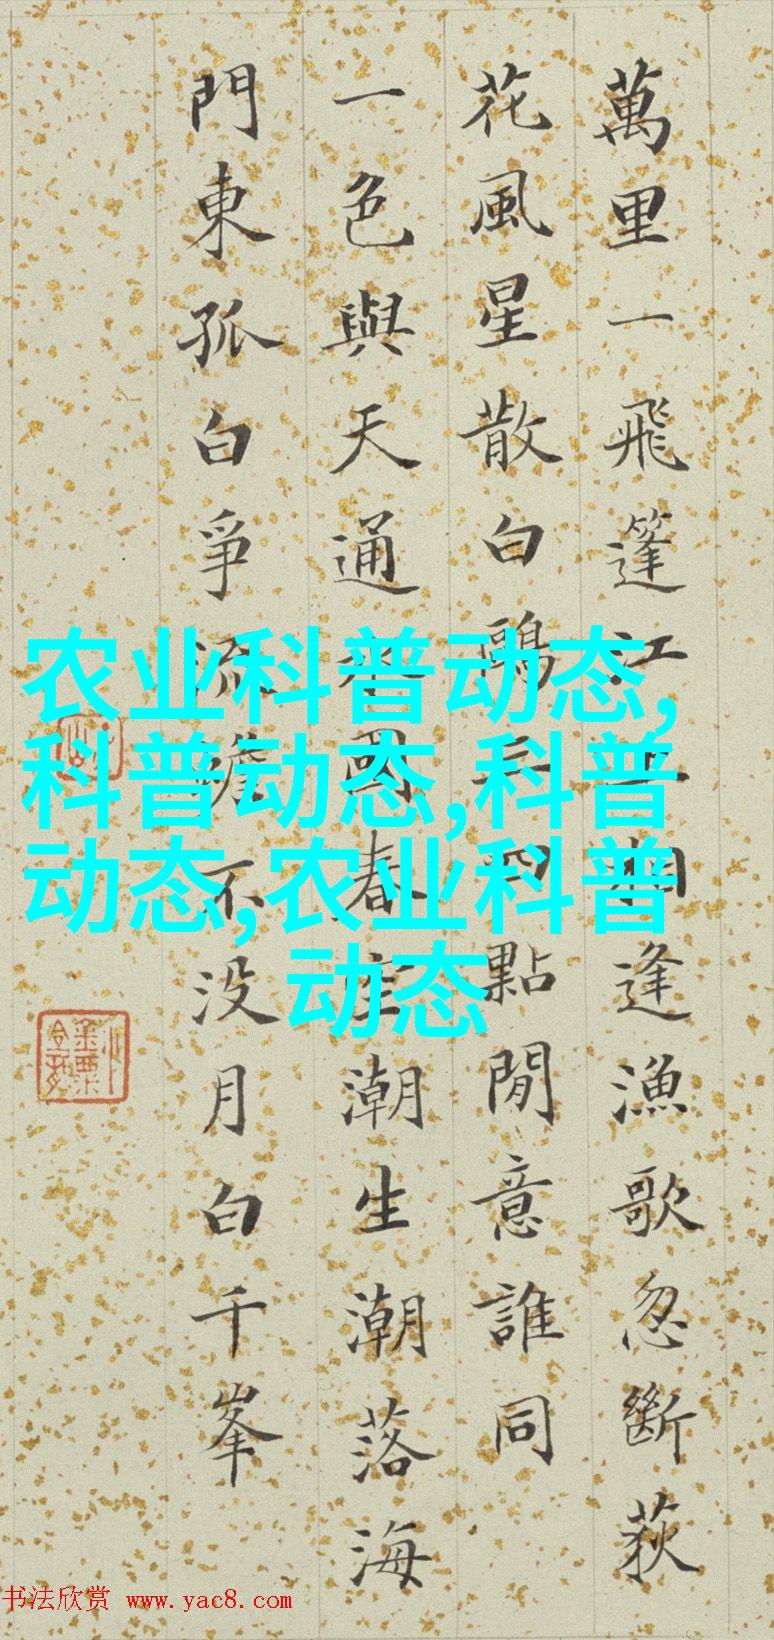 萬里一飛篷江上相逢漁歌忽斷荻
花風星散白鷗三四點閒意誰同
一色與天通水國春空潮生潮落海
門東孤白爭流蟾不没月白千峯
农业科普动态,
科普动态,科普
动态,农业科普
动态
书法欣赏 www.yac8.com